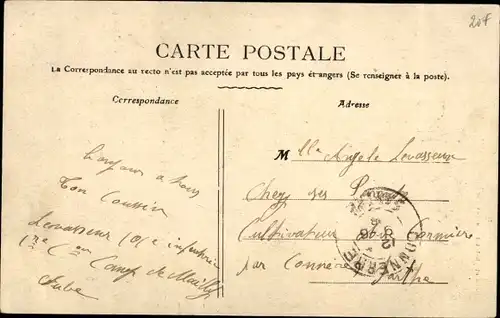 20f
CARTE POSTALE
La Correspondance au recto n'est pas acceptée par tous les pays étrangers (Se renseigner à la poste).
Correspondance
Adresse
Bonjour a tous
Ton Cousin
Levasseur 101e infanterie
Camp de Mailly
Aube
Mlle Angele Levasseur
Chez ses Parents
Cultivateur
par Connerré Sarthe
CONNERRÉ